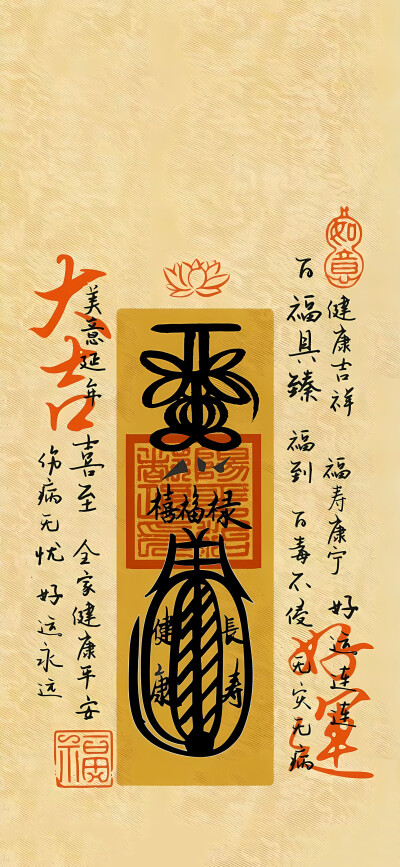 如意
健康吉祥 福寿康宁 好运连连
百福具臻 福到 百毒不侵 无灾无病
好运
禄福禧
長寿
健康
大吉
美意延年 喜至 全家健康平安
伤病无忧 好运永远
福